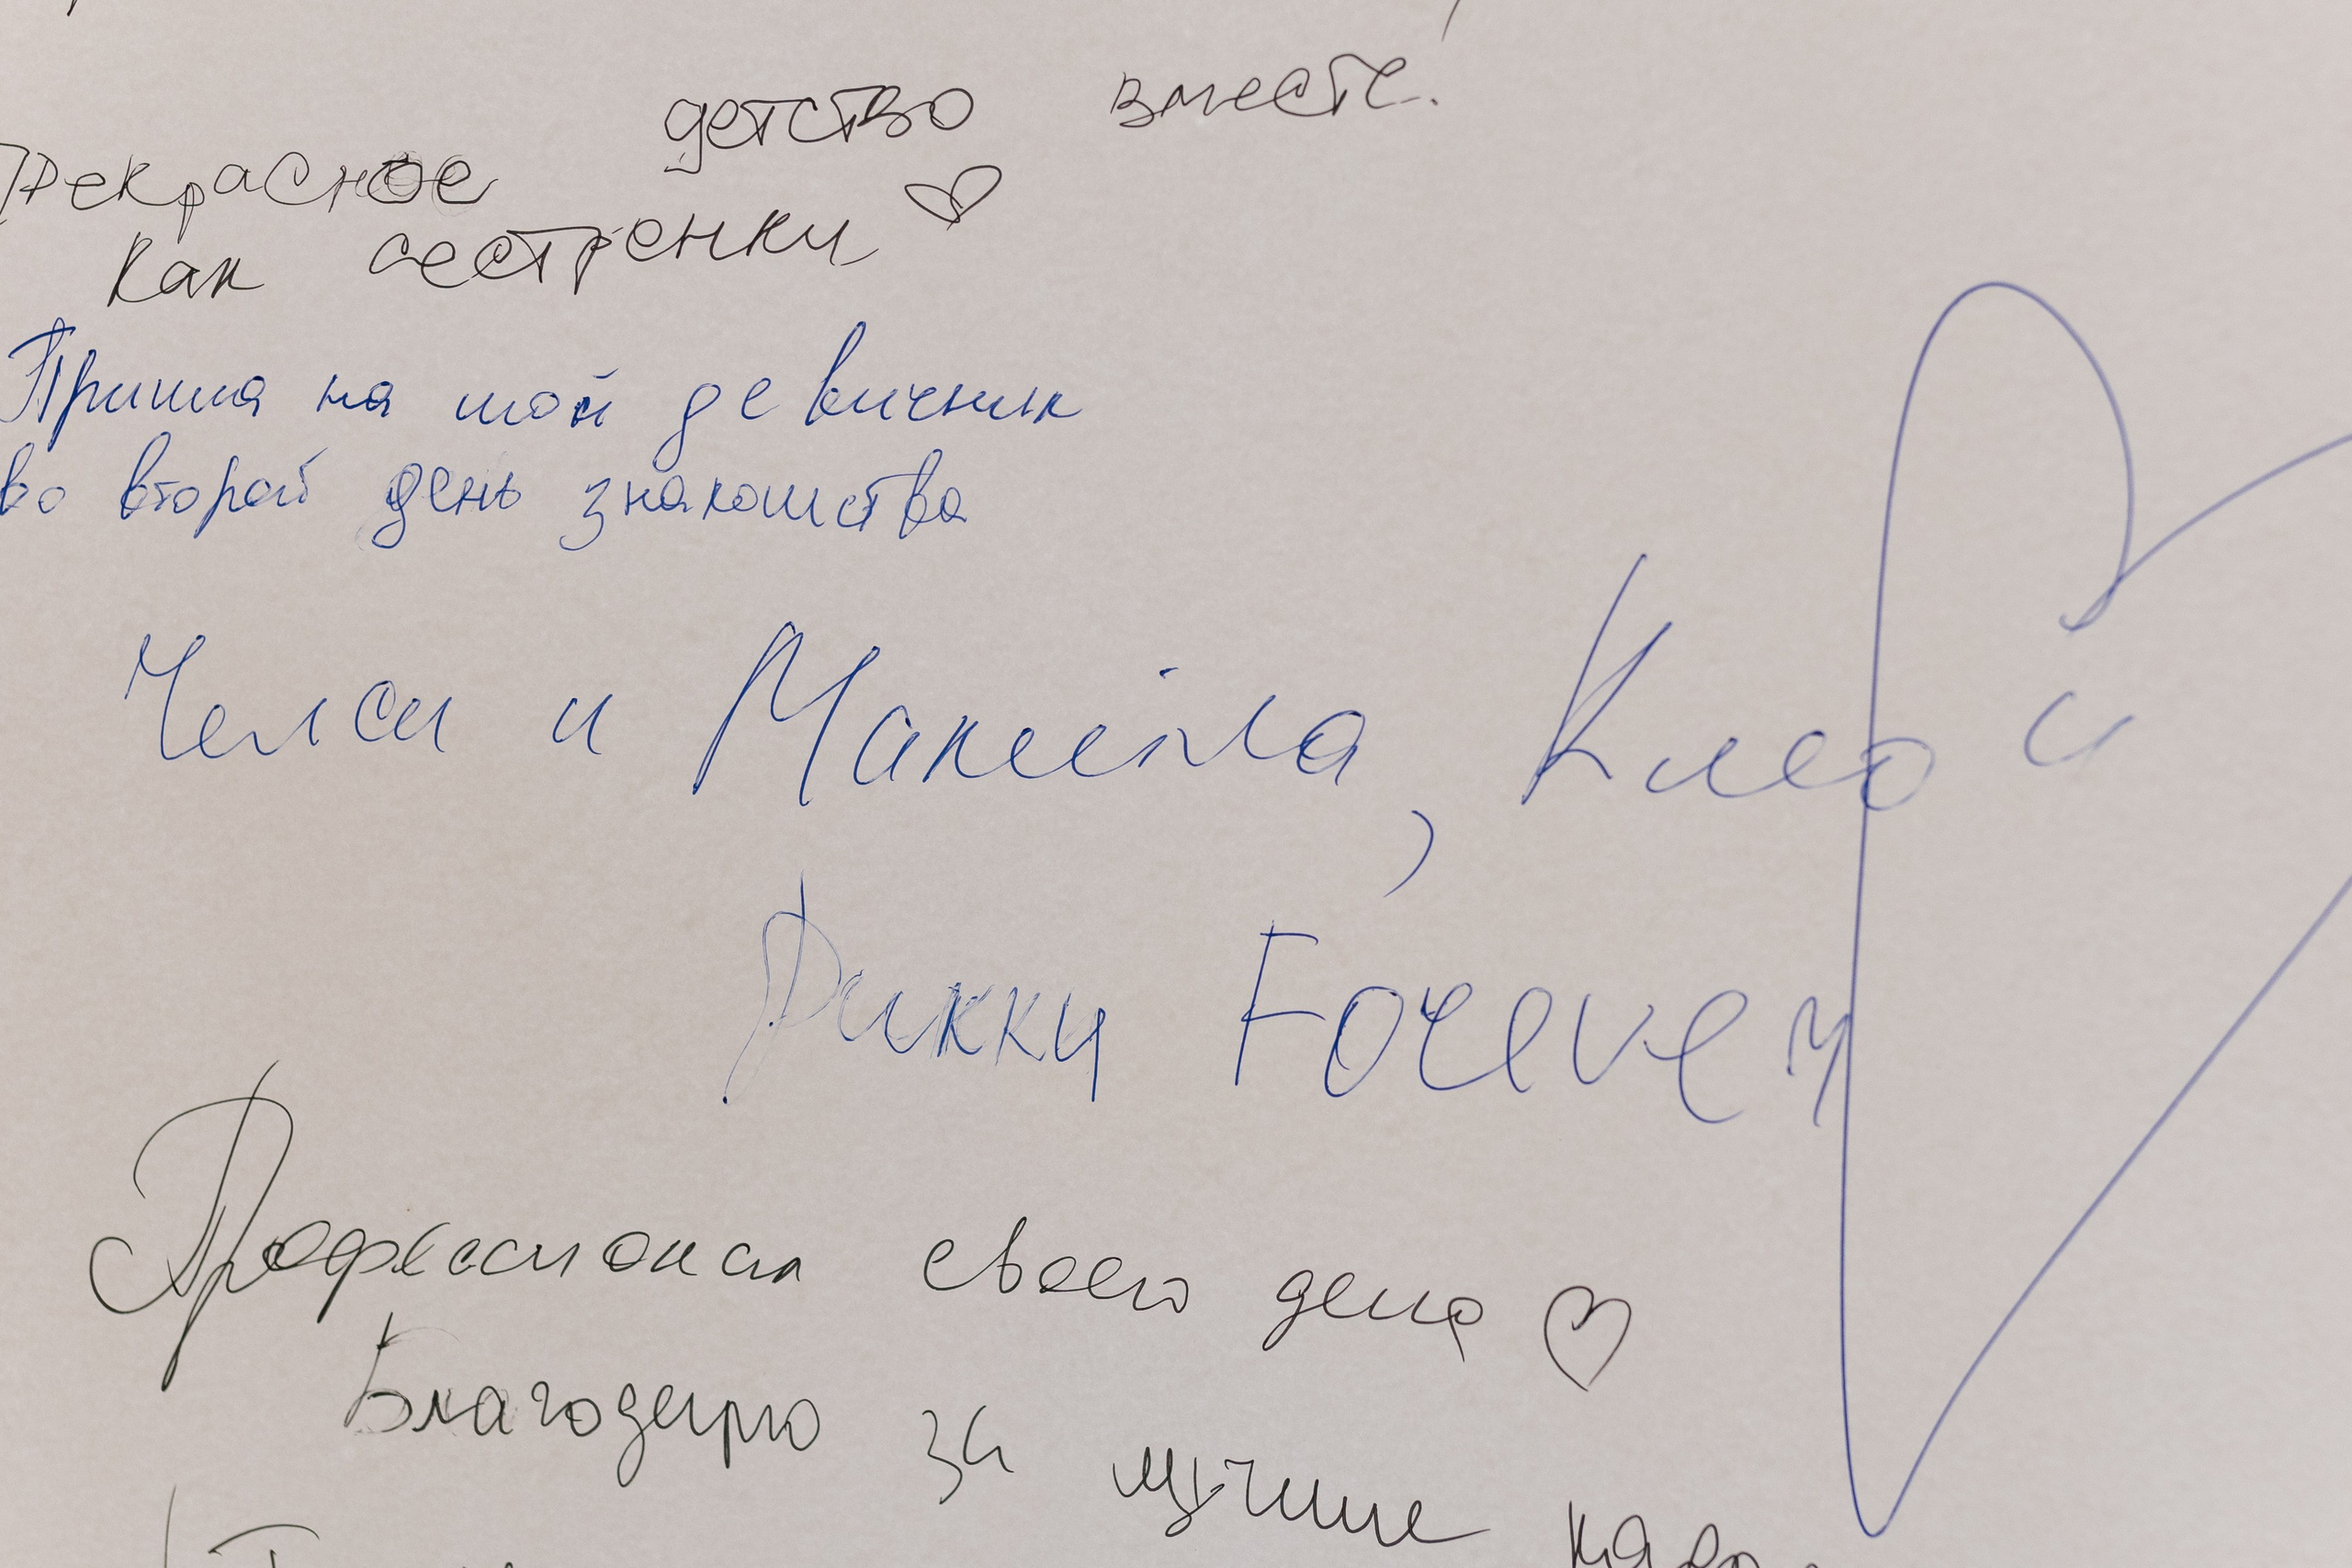 Прекрасное детство вместе!
Как сестренки
Пришла на мой девичник
во второй день знакомства
Челси и Макейла, Клео и
Рикки Forever
Профессионал своего дела
Благодарю за лучшие